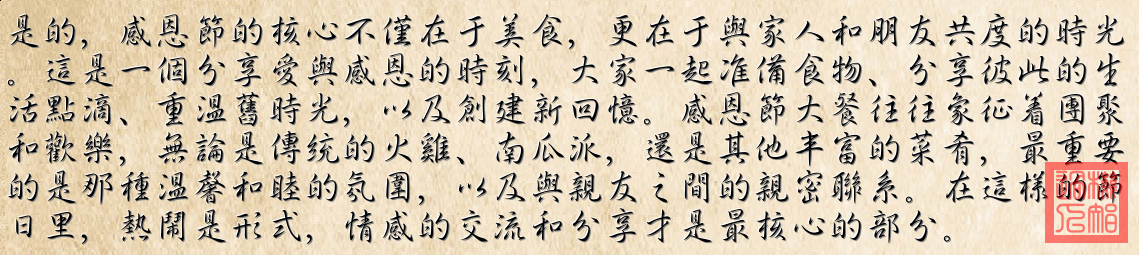 是的，感恩節的核心不僅在于美食，更在于與家人和朋友共度的時光
。這是一個分享愛與感恩的時刻，大家一起准備食物、分享彼此的生
活點滴、重溫舊時光，以及創建新回憶。感恩節大餐往往家征着團聚
和歡樂，無論是傳統的火雞、南瓜派，還是其他丰富的菜肴，最重要
的是那種溫馨和睦的氛圍，以及與親友之間的親密聯系。在這樣的節
日里，熱鬧是形式，情感的交流和分享才是最核心的部分。